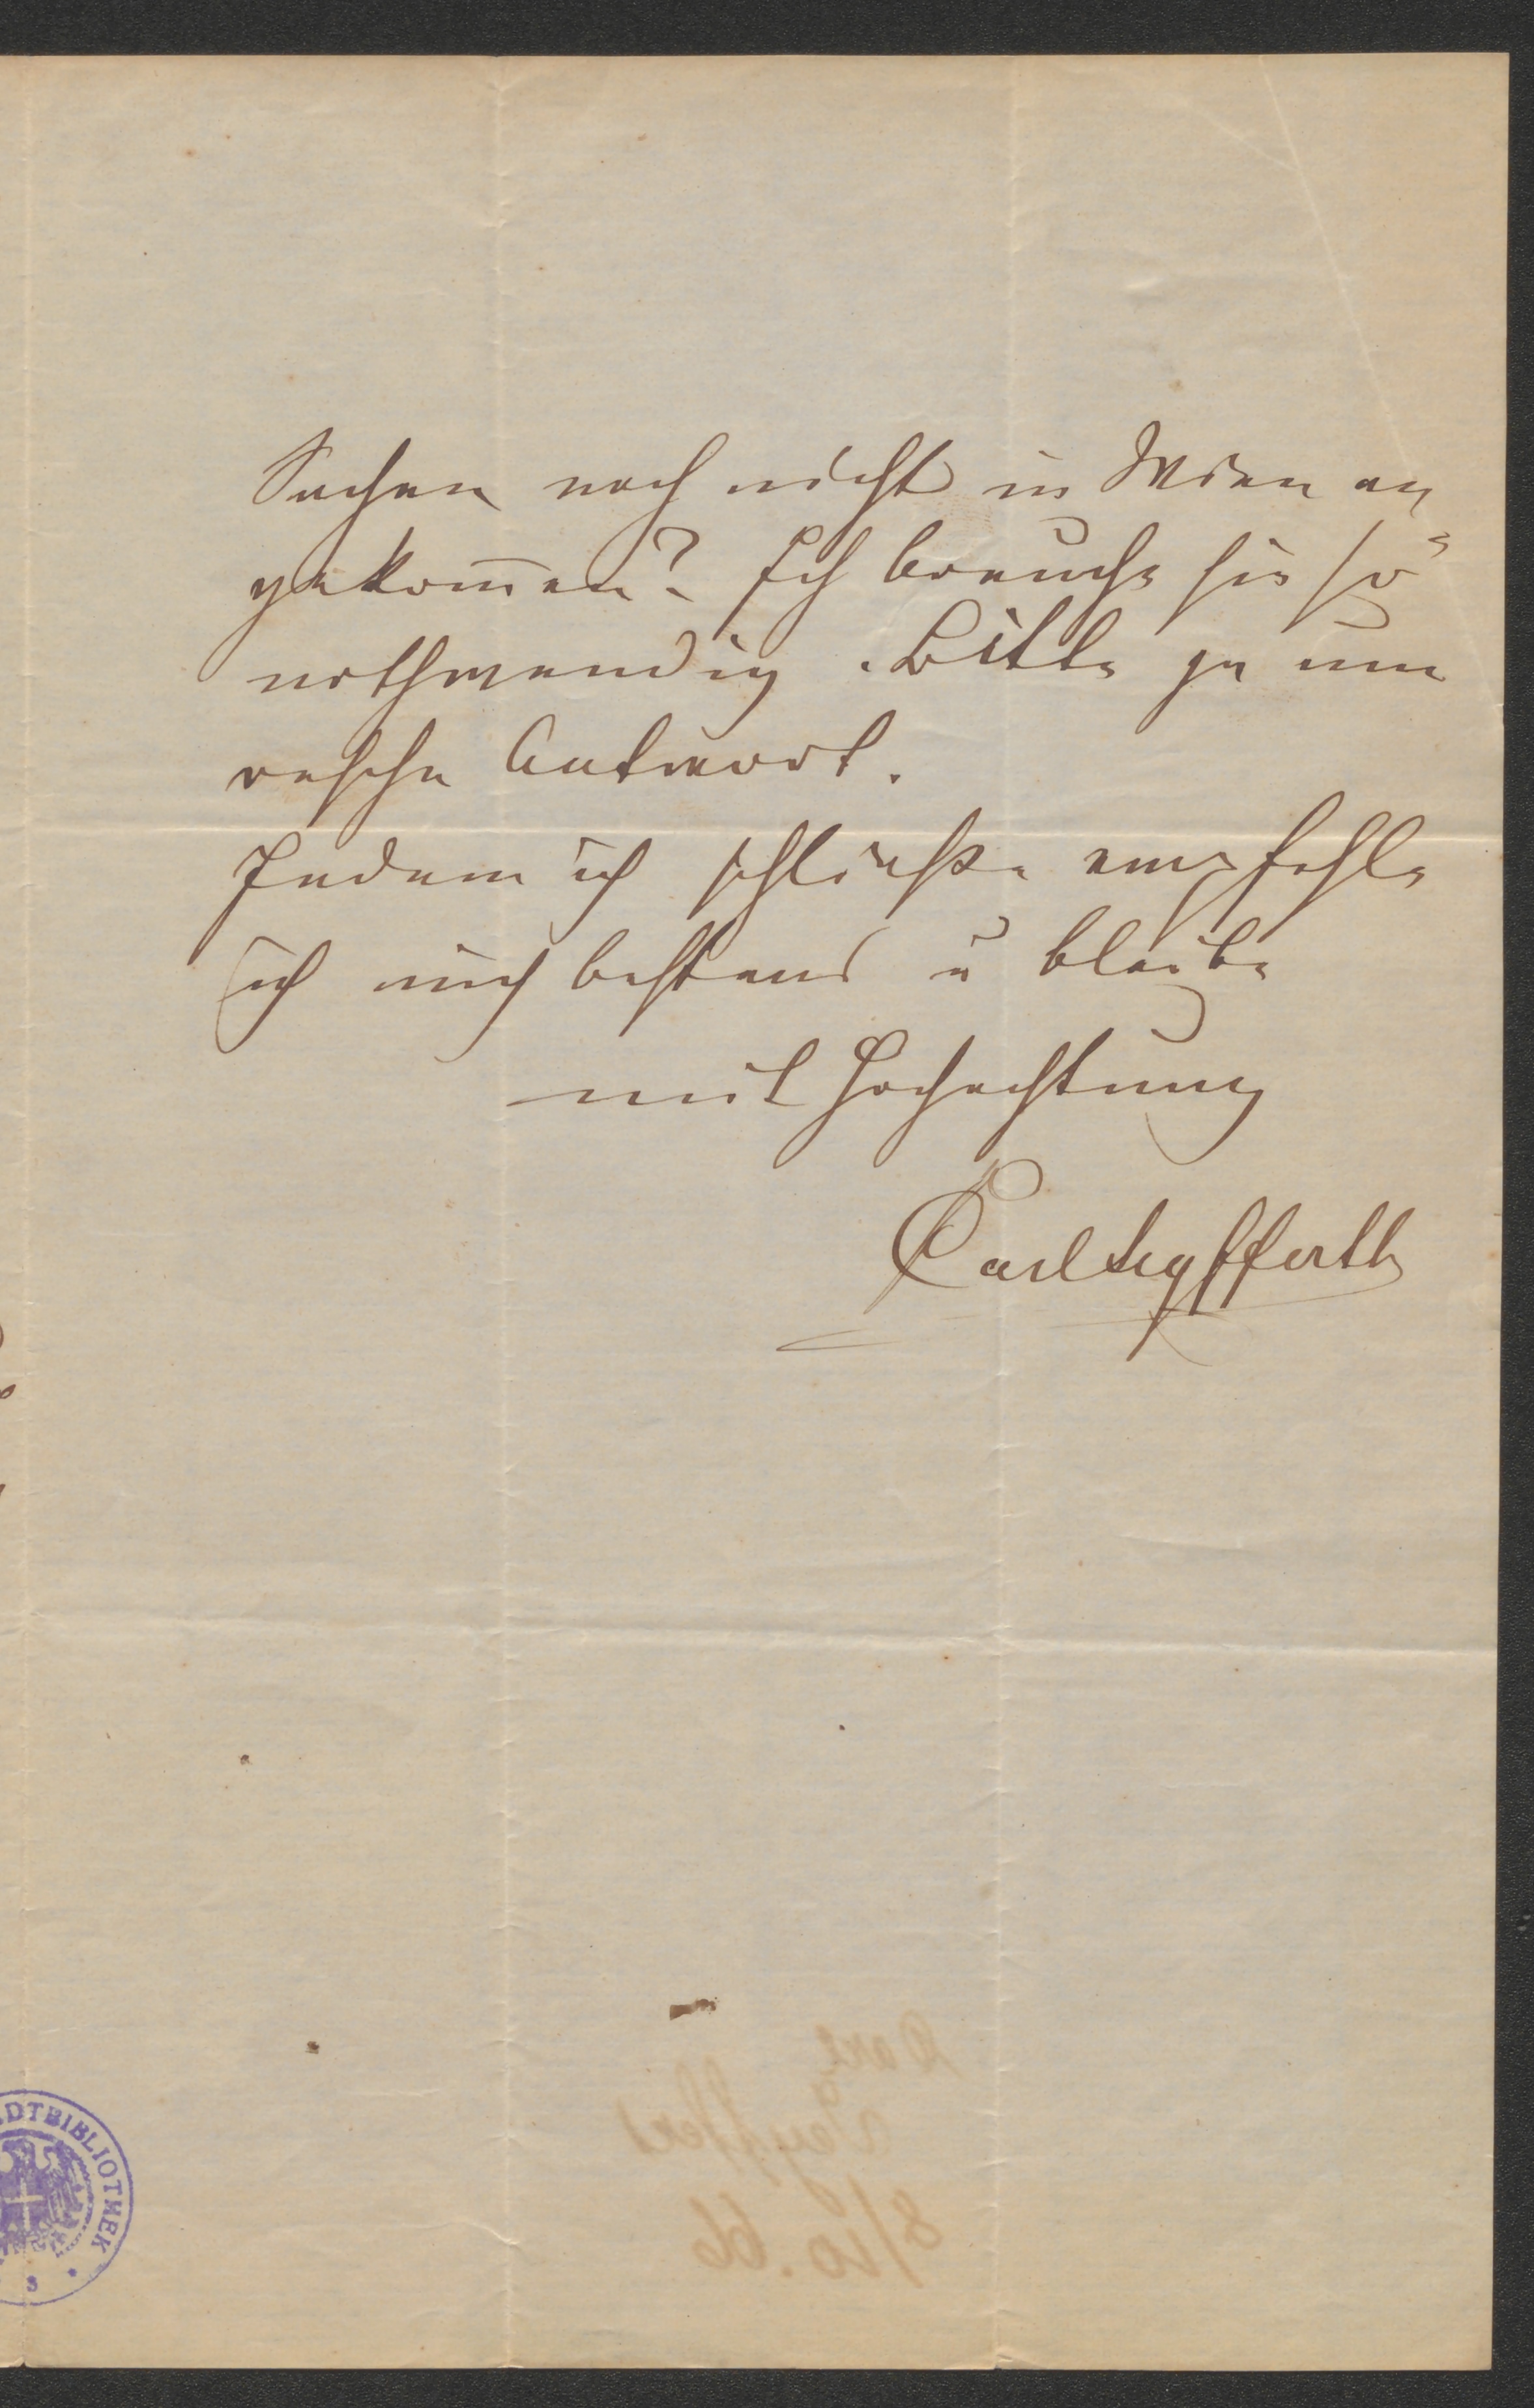 Sachen noch nicht in Wien an
gekom̅en? Ich brauche sie so
nothwendig. Bitte ja um
rasche Antwort.
Indem ich schließe empfehle
ich mich bestens u bleibe
mit Hochachtung
Carl Seyfferth
DTBIBLIOTHEK